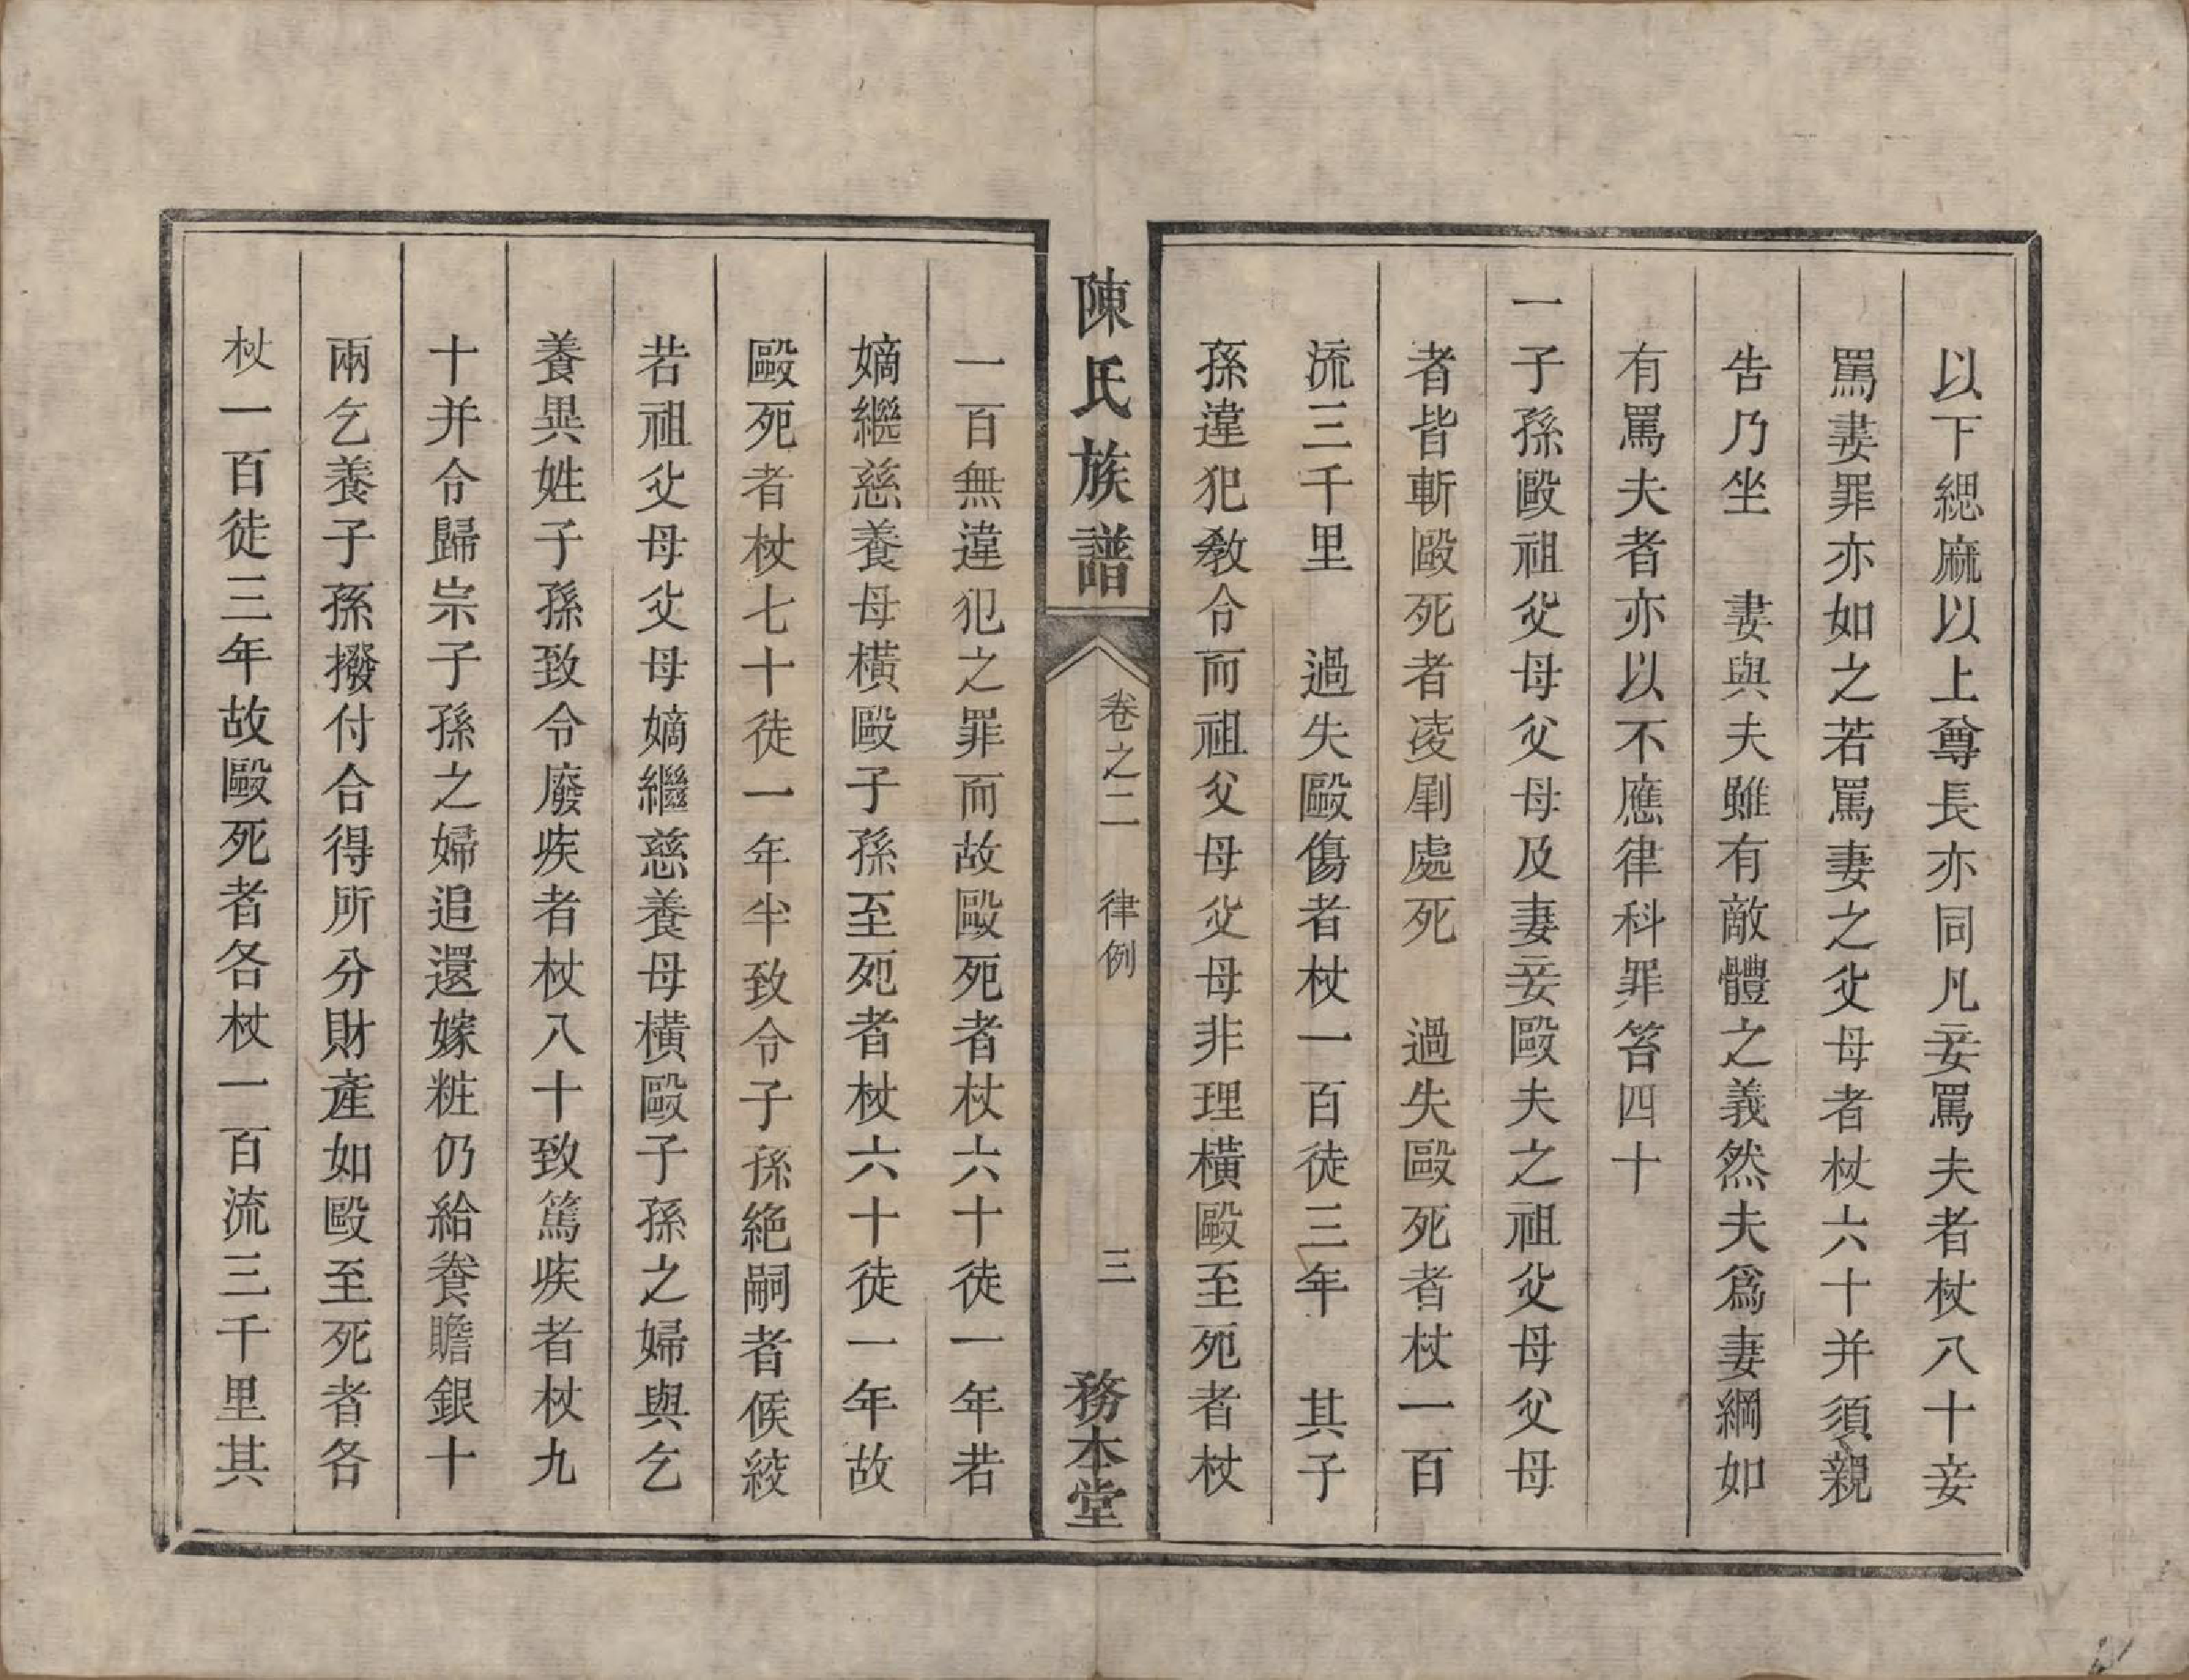 以下緦麻以上尊長亦同凡妾罵夫者杖八十妾
罵妻罪亦如之若罵妻之父母者杖六十并須親
告乃坐　妻與夫雖有敵體之義然夫爲妻綱如
有罵夫者亦以不應律科罪笞四十
一子孫毆祖父母父母及妻妾毆夫之祖父母父母
者皆斬毆死者凌剮處死　過失毆死者杖一百
流三千里　過失毆傷者杖一百徒三年　其子
孫違犯敎令而祖父母父母非理橫毆至死者杖
陳氏族譜
卷之二　律例
三
務本堂
一百無違犯之罪而故毆死者杖六十徒一年若
嫡繼慈養母橫毆子孫至死者杖六十徒一年故
毆死者杖七十徒一年半致令子孫絶嗣者候絞
若祖父母父母嫡繼慈養母橫毆子孫之婦與乞
養異姓子孫致令廢疾者杖八十致篤疾者杖九
十并令歸宗子孫之婦追還嫁粧仍給養贍銀十
兩乞養子孫撥付合得所分財產如毆至死者各
杖一百徒三年故毆死者各杖一百流三千里其